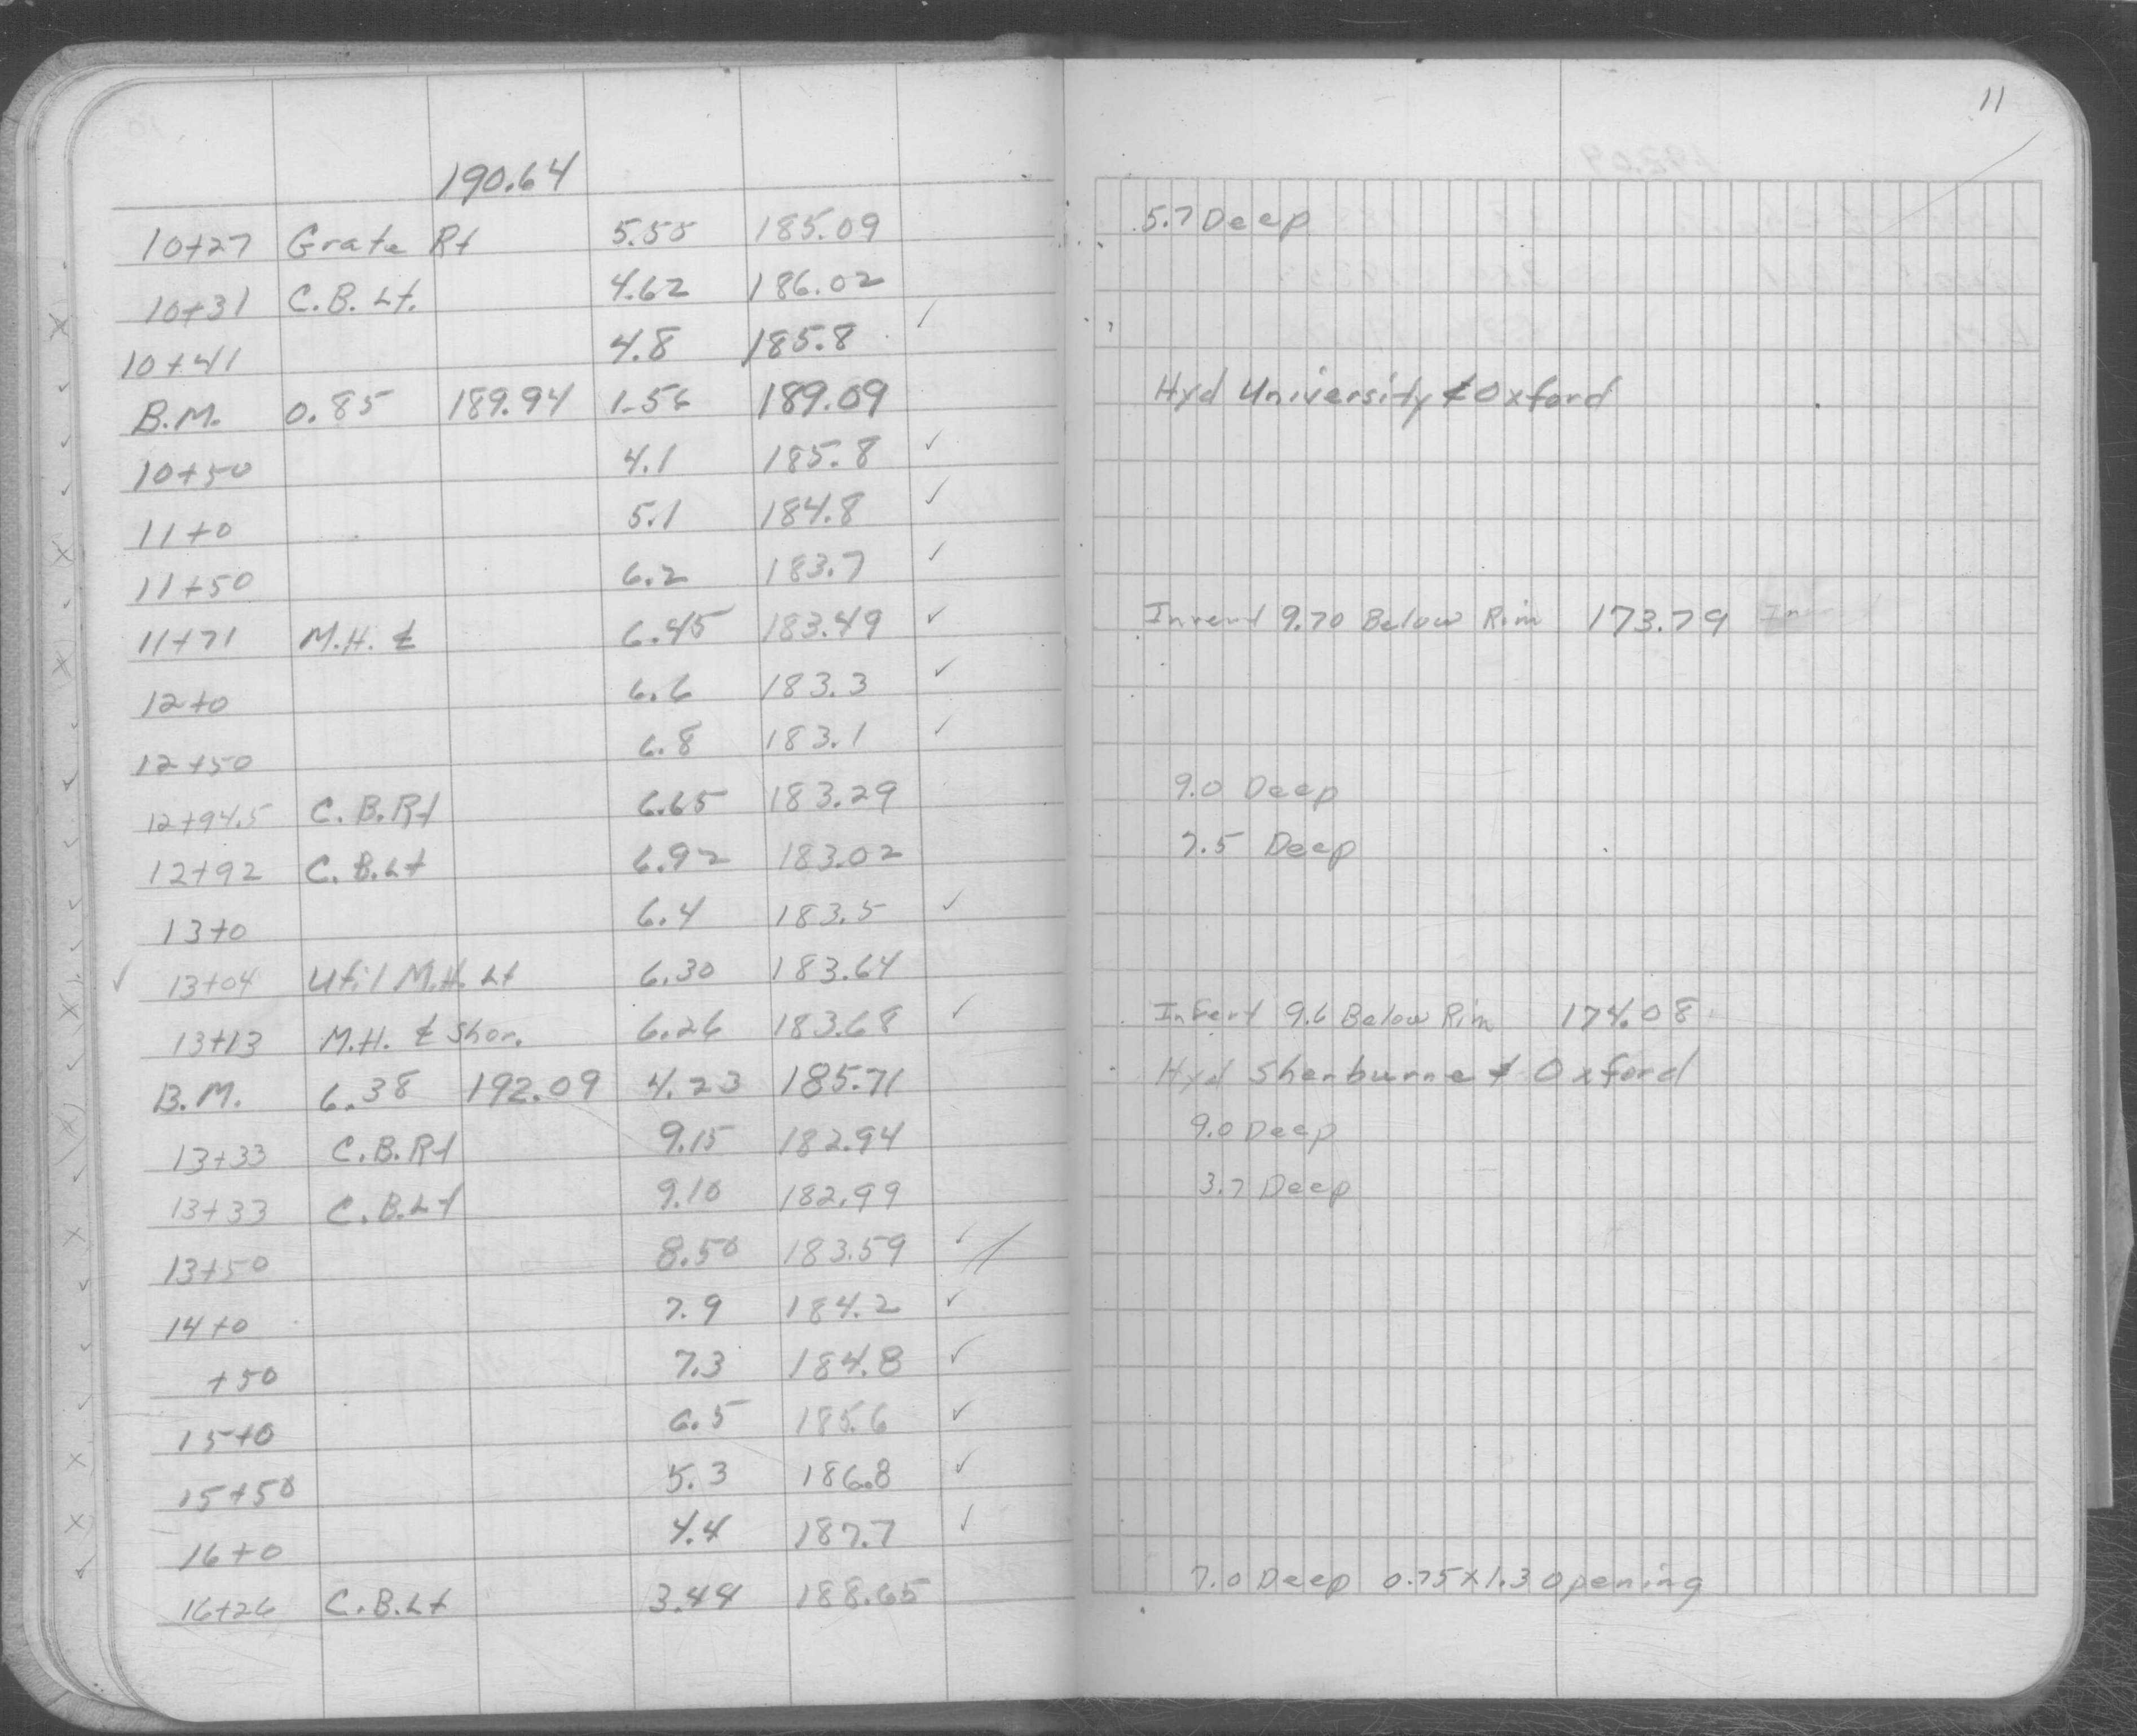 11
190.64
10+27 Grate Rt 5.55 185.09 5.7 Deep
10+31 C.B. Lt. 4.62 186.02
10+41 4.8 185.8 ✓
B.M. 0.85 189.94 1.55 189.09 Hyd University & Oxford
10+50 4.1 185.8 ✓
11+0 5.1 184.8 ✓
11+50 6.2 183.7 ✓
11+71 M.H. ₵ 6.45 183.49 ✓ Invert 9.70 Below Rim 173.79 In
12+0 6.6 183.3 ✓
12+50 6.8 183.1 ✓
12+94.5 C.B.Rt 6.65 183.29 9.0 Deep
12+92 C.B.Lt 6.92 183.02 7.5 Deep
13+0 6.4 183.5 ✓
✓ 13+04 Util M.H. Lt 6.30 183.64
13+13 M.H. ₵ Sher. 6.26 183.68 ✓ Invert 9.6 Below Rim 174.08
B.M. 6.38 192.09 4.23 185.71 Hyd Sherburne & Oxford
13+33 C.B.Rt 9.15 182.94 9.0 Deep
13+33 C.B.Lt 9.10 182.99 3.7 Deep
13+50 8.50 183.59 ✓
14+0 7.9 184.2 ✓
+50 7.3 184.8 ✓
15+0 6.5 185.6 ✓
15+50 5.3 186.8 ✓
16+0 4.4 187.7 ✓
16+26 C.B.Lt 3.44 188.65 7.0 Deep 0.75x1.3 Opening